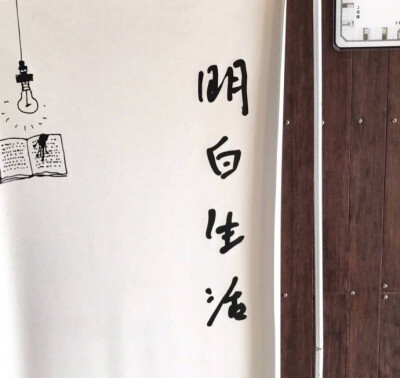 明白生活